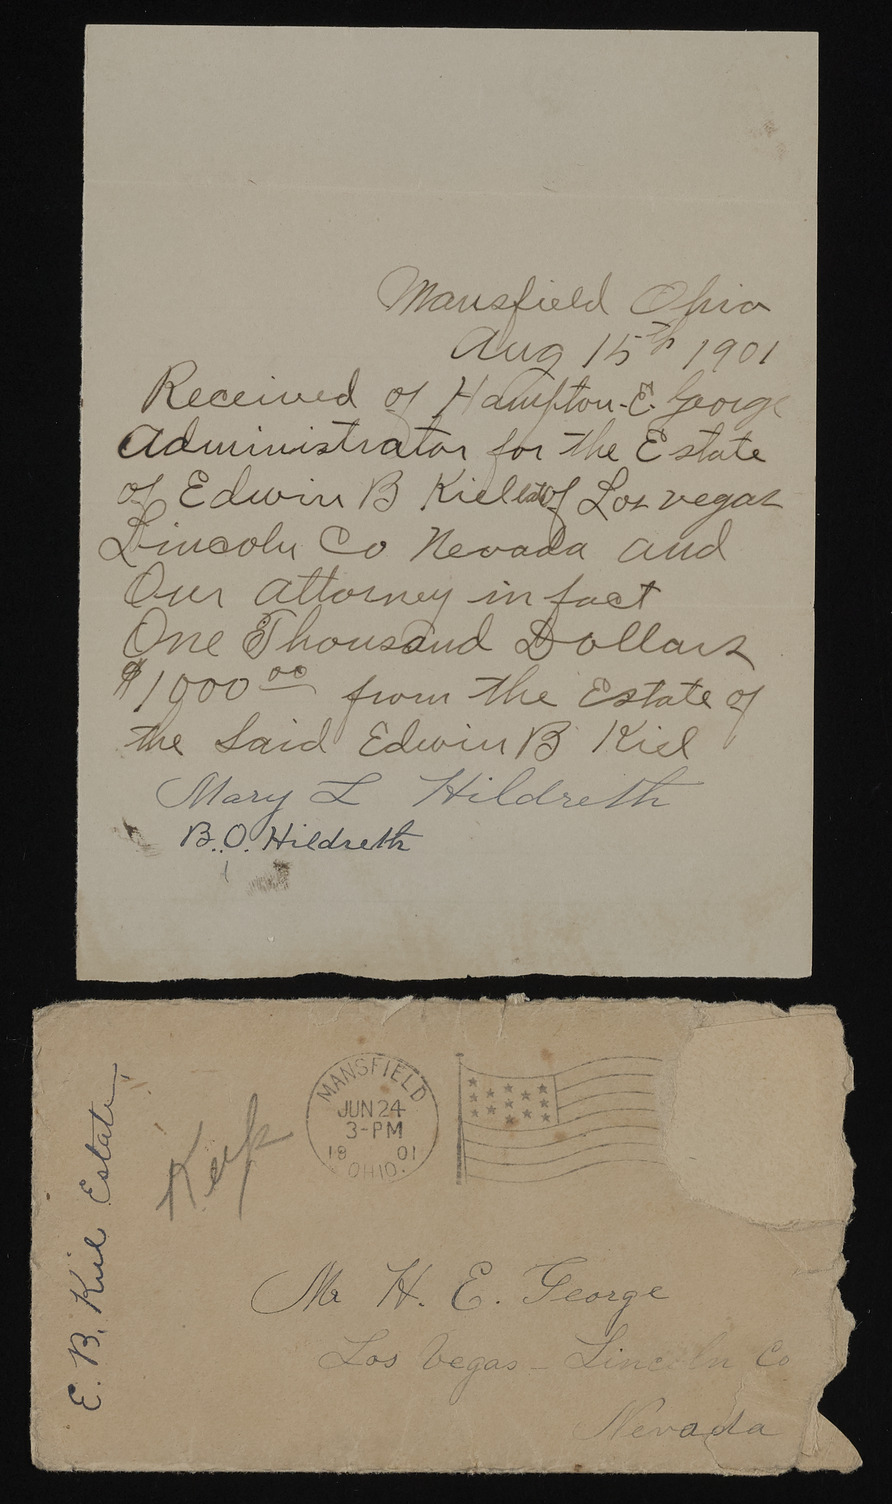 Mansfield Ohio
Aug 15th 1901
Received of Hampton E. George
Administrator for the Estate
of Edwin B Kiel of Los vegas
Lincoln Co Nevada and
Our attorney in fact
One Thousand Dollars
$1000 00 from the Estate of
the Said Edwin B Kiel
Mary L Hildreth
B. O. Hildreth
E. B. Kiel Estate
Keep
MANSFIELD
JUN 24
3-PM
18 01
OHIO.
Mr H. E. George
Los Vegas - Lincoln Co
Nevada